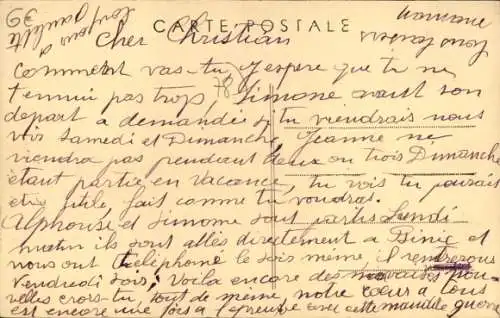 CARTE POSTALE
Cher Christian
Comment vas-tu, J'espere que tu ne
t'ennui pas trop, Simone avant son
depart a demandée si tu viendrais nous
voir Samedi et Dimanche, Jeanne ne
viendra pas pendant deux ou trois Dimanche
étant partie en Vacance, tu vois tu pourais
etre utile, fait comme tu voudras.
Alphonse et Simone sont partis Lundi
matin ils sont allés directement a Binic et
nous ont téléphoné le soir meme, il rentrerons
Vendredi soir, Voila encore des mauvaises nou-
velles crois-tu, tout de meme, notre cœur a tous
est encore une fois a l'epreuve avec cette maudite guerre